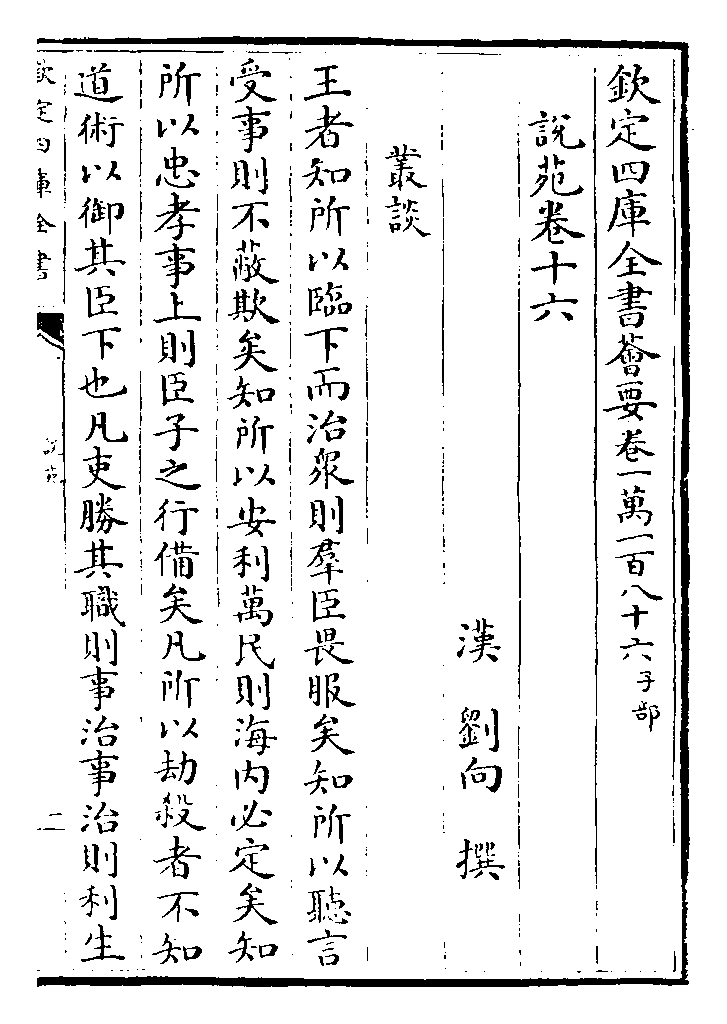 欽定四庫全書薈要卷一萬一百八十六子部
說苑卷十六
漢劉向撰
叢談
王者知所以臨下而治衆則羣臣畏服矣知所以聽言
受事則不蔽欺矣知所以安利萬民則海内必定矣知
所以忠孝事上則臣子之行備矣凡所以劫殺者不知
道術以御其臣下也凡吏勝其職則事治事治則利生
欽定四庫全書
說苑